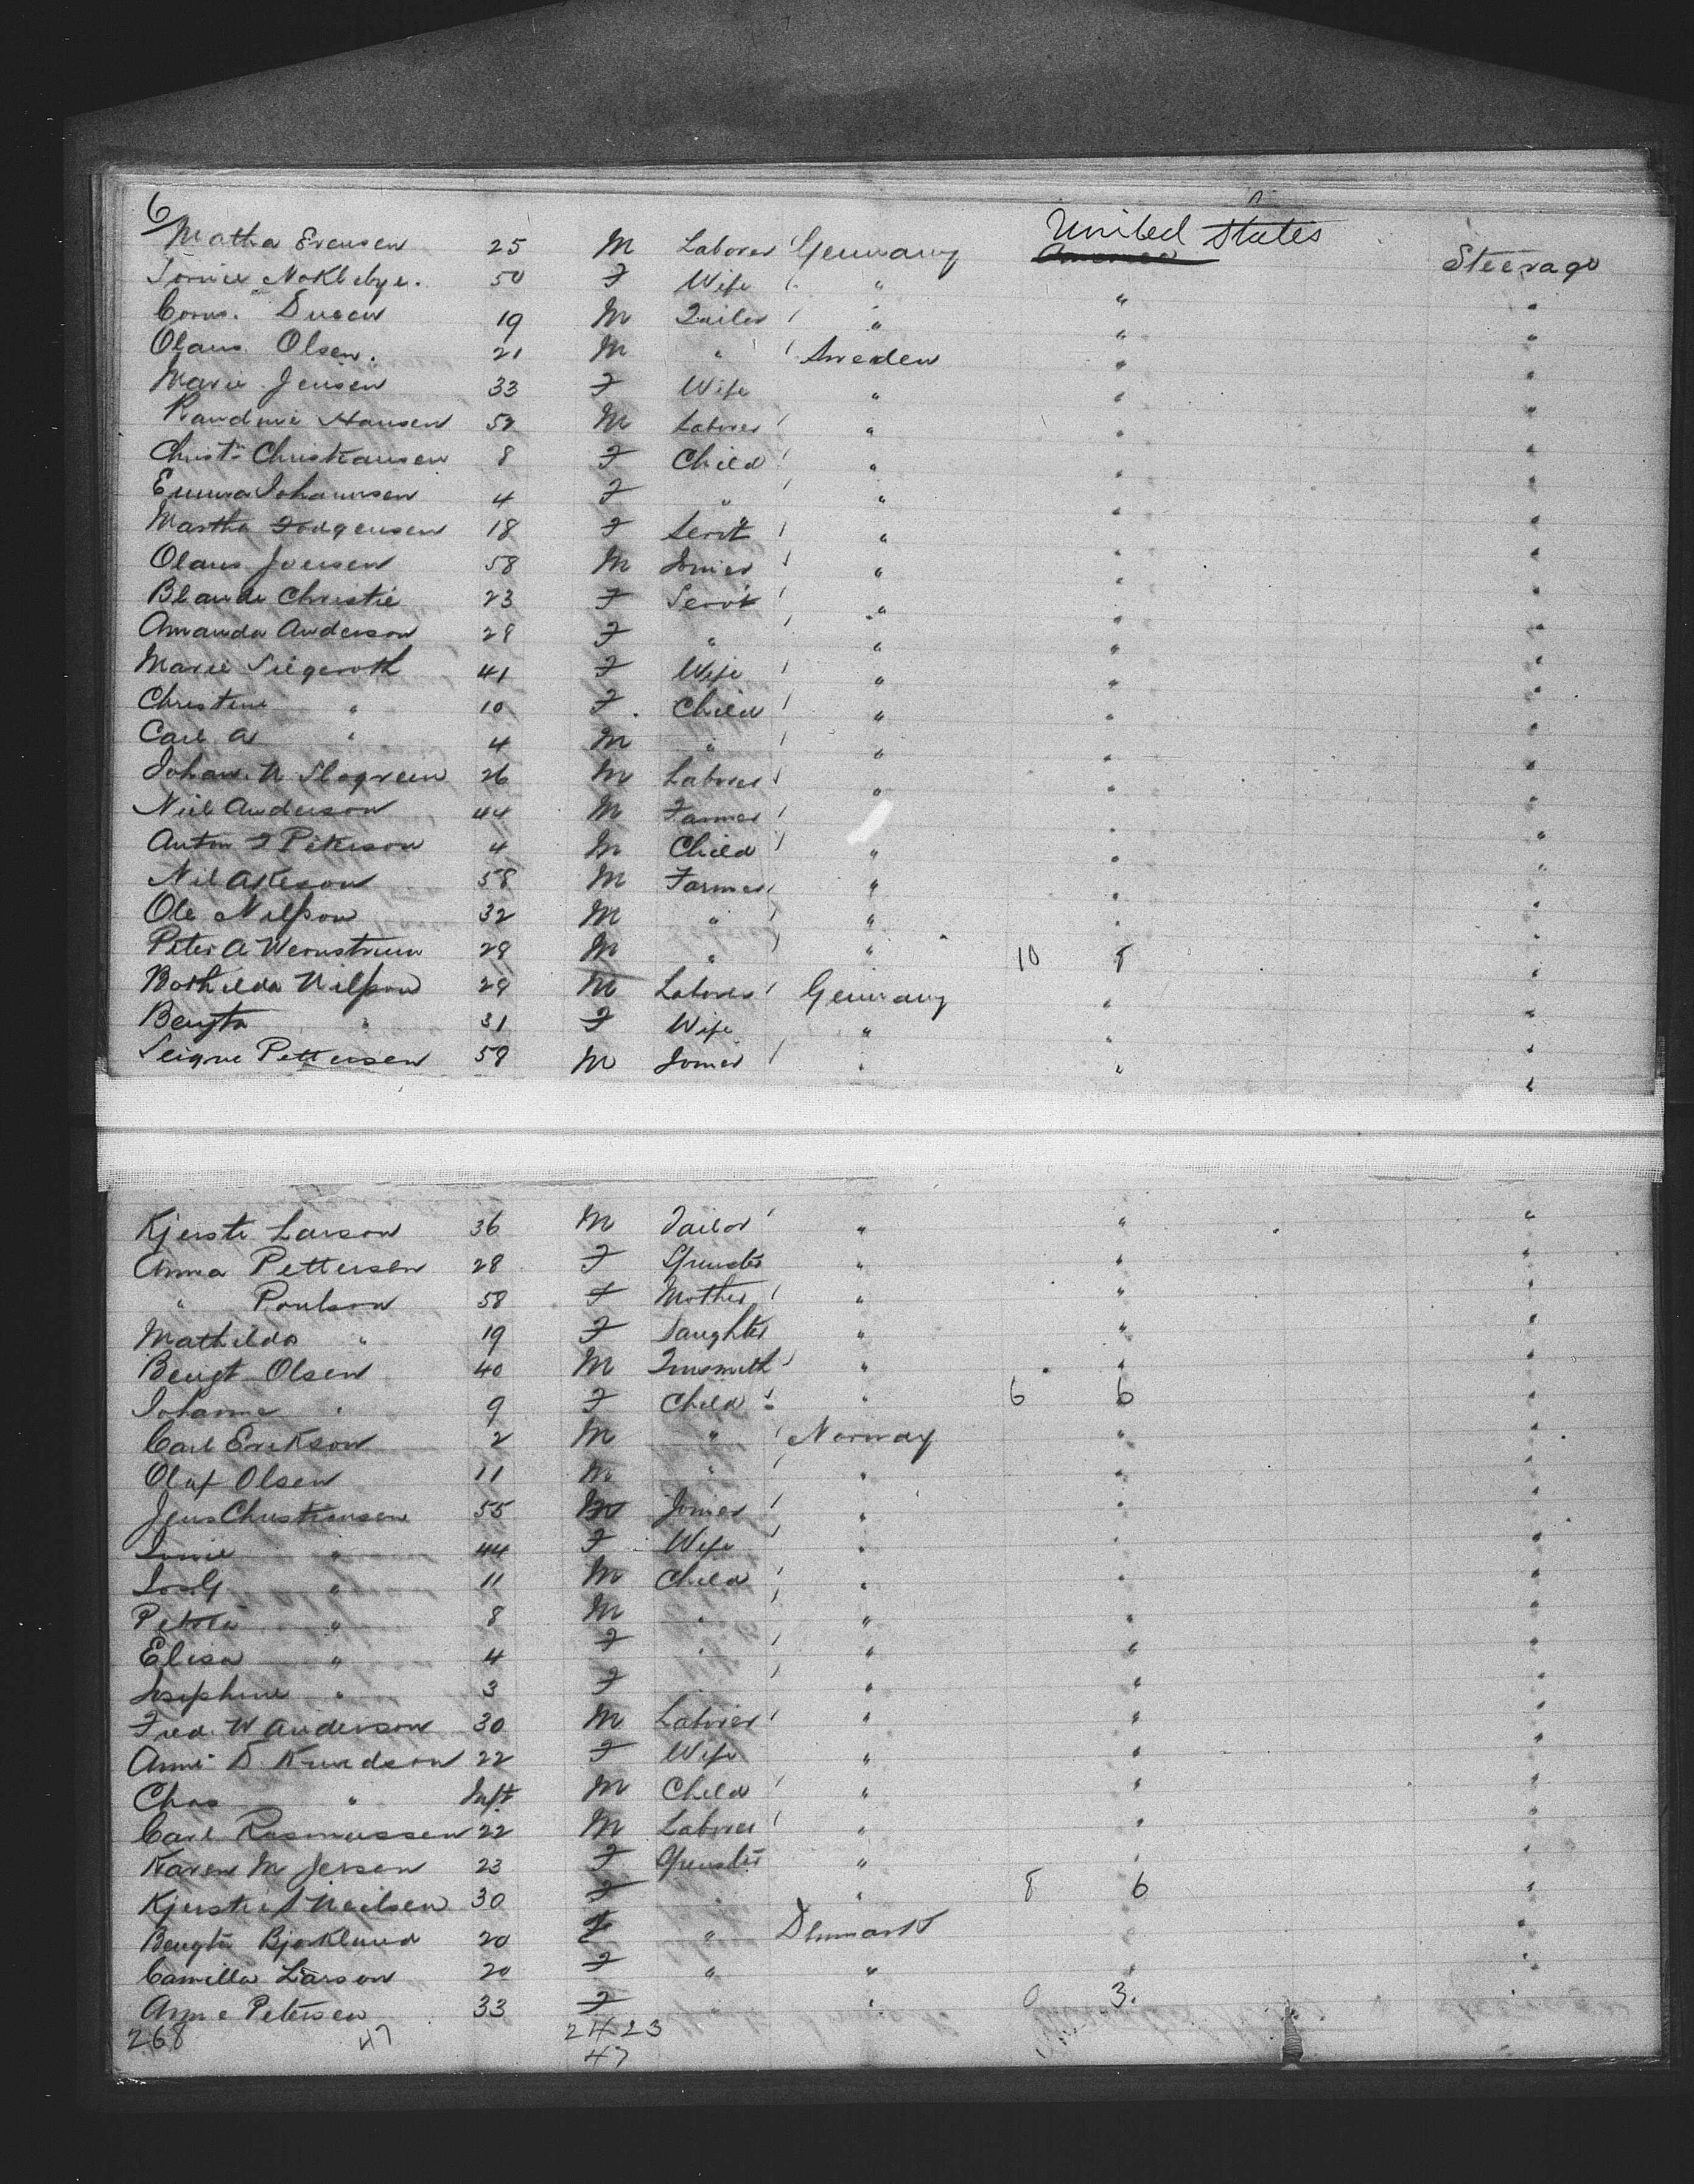 6
United States
Matha Evensen 25 M Laborer Germany America Steerage
Nokblebye. 50 F Wife " " "
Corns. 19 M Tailor " " "
Olaus Olsen. 21 M " Sweden " "
Marie Jensen 33 F Wife " " "
Randine Hansen 52 M Laborer " " "
Christn Christiansen 8 F Child " " "
Emma Johannsen 4 F " " " "
Martha Forgensen 18 F Servt " " "
Olaus Joersen 58 M Joiner " " "
Blande Christie 23 F Servt " " "
Amanda Anderson 28 F " " " "
Marie Siegeroth 41 F Wife " " "
Christine " 10 F Child " " "
Carl A " 4 M " " " "
Johan. N 26 M Laborer " " "
Niel Anderson 44 M Farmer " "
Anton F Peterson 4 M Child " " "
Nil Akeson 58 M Farmer " " "
Ole Nilsson 32 M " " " "
Peter A Wernstrum 29 M " " 10 8 "
Bothilda Nilsson 29 M Laborer Germany " "
Bengta " 31 F Wife " " "
Seigne Pettersen 59 M Joiner " " "
Kjersti Larson 36 M Tailor " " "
Anna Pettersen 28 F Spinster " " "
" Poulson 58 F Mother " " "
Mathilda " 19 F Daughter " " "
Bengt Olsen 40 M Tinsmith " " "
Johanna " 9 F Child " 6 6 "
Carl Erikson 2 M " Norway " "
Olaf Olsen 11 M " " " "
Jens Christiansen 55 M Joiner " " "
" 44 F Wife " " "
" 11 M Child " " "
Petrea " 8 M " " " "
Elisa " 4 F " " " "
Josephine " 3 F " " "
Fred. W Anderson 30 M Laborer " " "
Anne D Knudson 22 F Wife " " "
Chas " Inft M Child " " "
Carl Rasmussen 22 M Laborer " " "
Karen M Jersen 23 F Spinster " " "
Kjerstie Neilsen 30 F " " 8 6 "
Bengta Bjorklund 20 F " Denmark " "
Camilla Larson 20 F " " " "
Anne Petersen 33 F " " 0 3. "
268 47 24 23
47